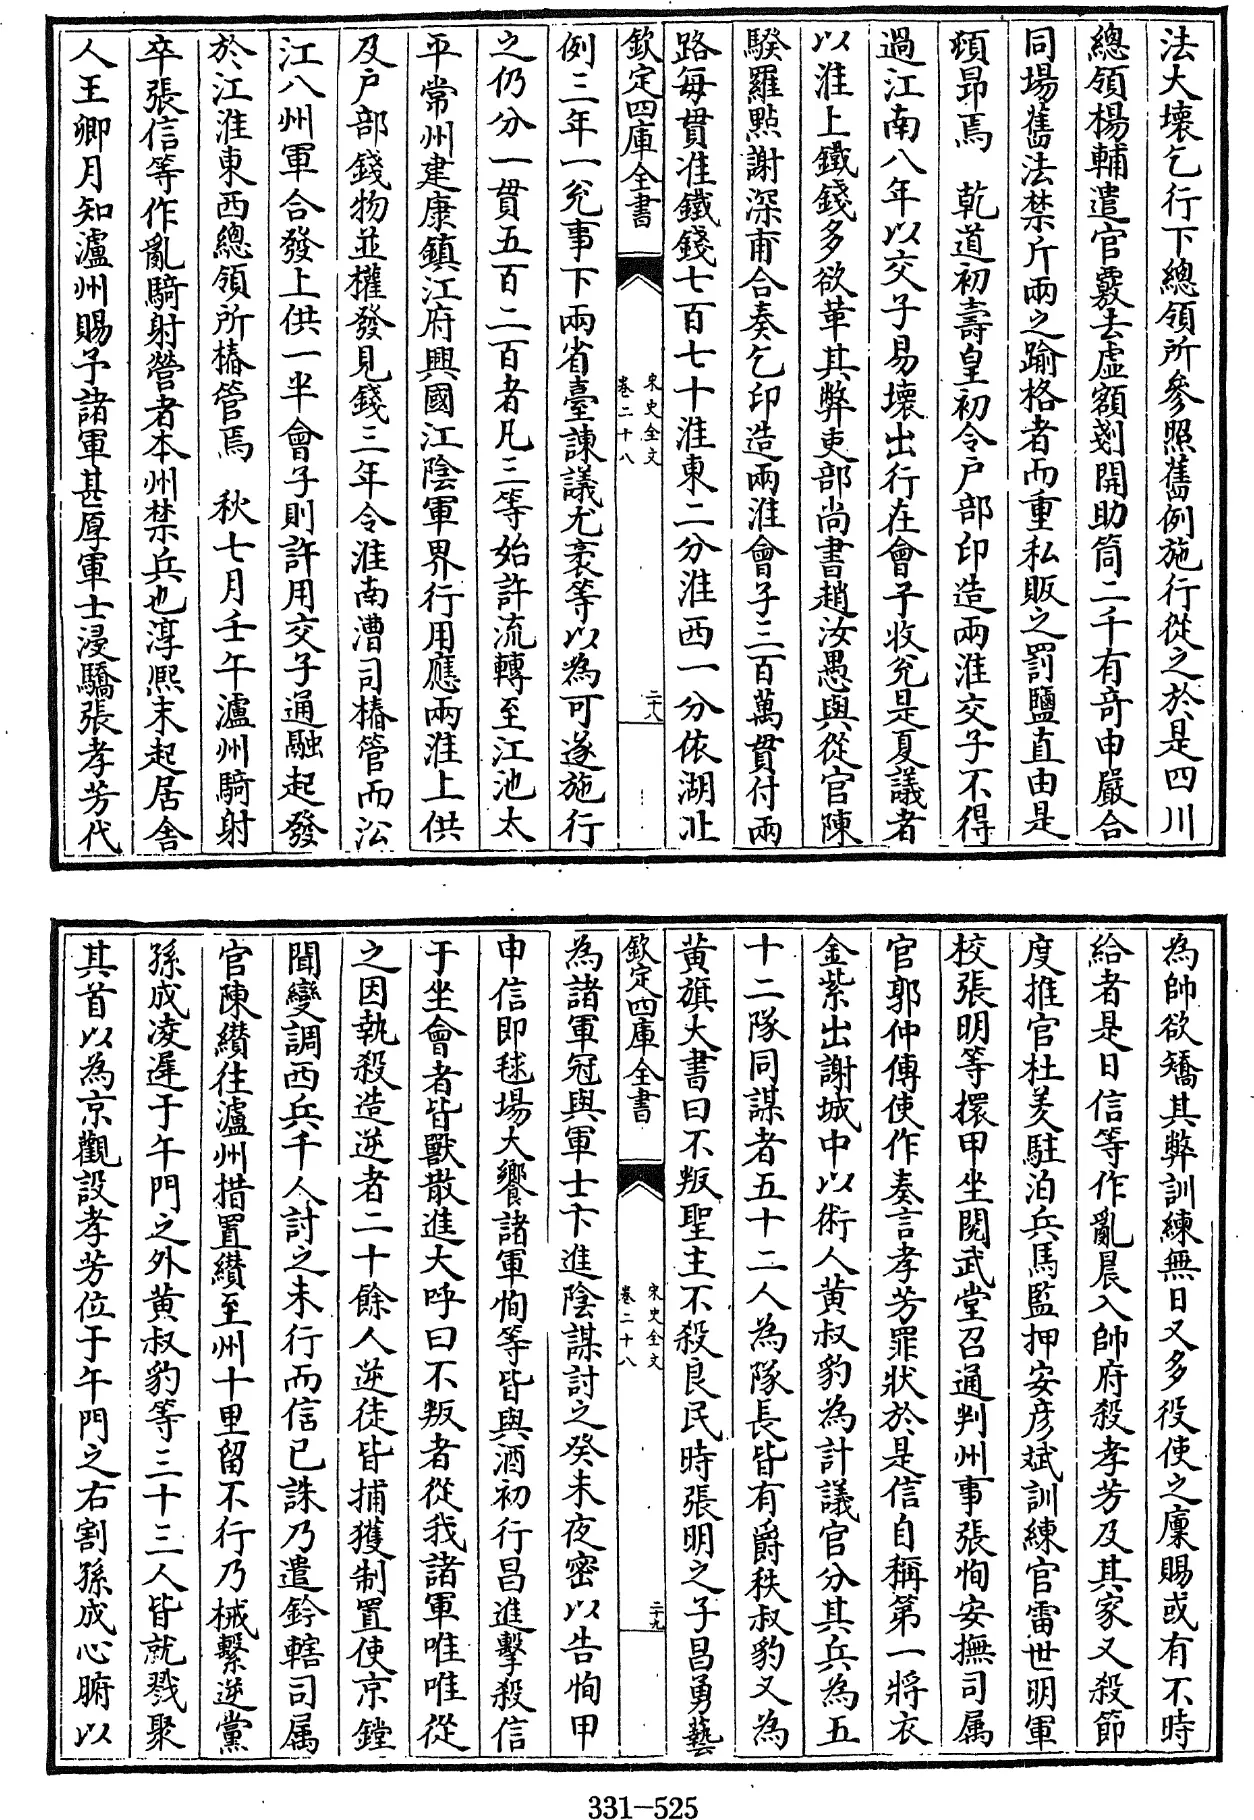 法大壞乞行下總領所參照舊例施行從之於是四川
總領楊輔遣官覈去虛額剗開助筒二千有奇申嚴合
同場舊法禁斤兩之踰格者而重私販之罰鹽直由是
頓昻焉　乾道初壽皇初令户部印造兩淮交子不得
過江南八年以交子易壞出行在會子收兊是夏議者
以淮上鐵錢多欲革其弊吏部尚書趙汝愚與從官陳
騤羅㸃謝深甫合奏乞印造兩淮會子三百萬貫付兩
路每貫准鐵錢七百七十淮東二分淮西一分依湖北
欽定四庫全書
宋史全文
卷二十八
二十八
例三年一兊事下兩省臺諫議尤袤等以為可遂施行
之仍分一貫五百二百者凡三等始許流轉至江池太
平常州建康鎮江府興國江陰軍界行用應兩淮上供
及户部錢物並權發見錢三年令淮南漕司樁管而沿
江八州軍合發上供一半會子則許用交子通融起發
於江淮東西總領所樁管焉　秋七月壬午瀘州騎射
卒張信等作亂騎射營者本州禁兵也淳熙末起居舍
人王卿月知瀘州賜予諸軍甚厚軍士浸驕張孝芳代
為帥欲矯其弊訓練無日又多役使之廩賜或有不時
給者是日信等作亂晨入帥府殺孝芳及其家又殺節
度推官杜美駐泊兵馬監押安彦斌訓練官雷世明軍
校張明等擐甲坐閱武堂召通判州事張恂安撫司属
官郭仲傅使作奏言孝芳罪狀於是信自稱第一將衣
金紫出謝城中以術人黄叔豹為計議官分其兵為五
十二隊同謀者五十二人為隊長皆有爵秩叔豹又為
黄旗大書曰不叛聖主不殺良民時張明之子昌勇藝
欽定四庫全書
宋史全文
卷二十八
二十九
為諸軍冠與軍士卞進陰謀討之癸未夜密以告恂甲
申信即毬場大饗諸軍恂等皆與酒初行昌進擊殺信
于坐會者皆獸散進大呼曰不叛者從我諸軍唯唯從
之因執殺造逆者二十餘人逆徒皆捕獲制置使京鏜
聞變調西兵千人討之未行而信已誅乃遣鈐轄司属
官陳纉往瀘州措置纉至州十里留不行乃械繫逆黨
孫成凌遲于午門之外黄叔豹等三十三人皆就戮聚
其首以為京觀設孝芳位于午門之右割孫成心腑以
331-525